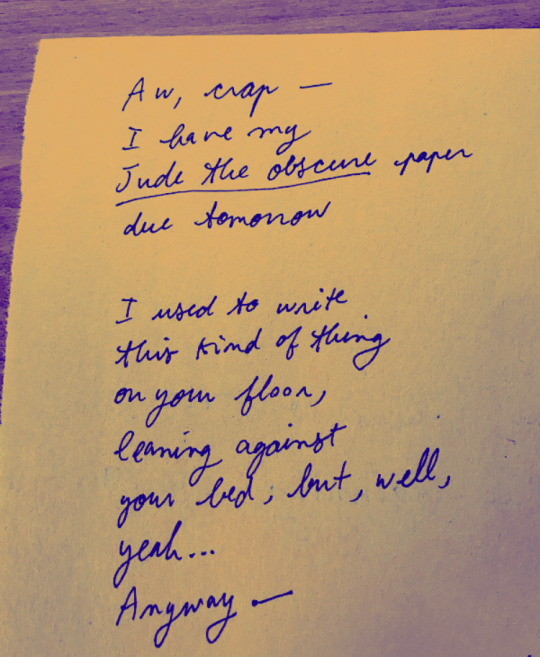 Aw, crap —
I have my
Jude the obscure paper
due tomorrow
I used to write
this kind of thing
on your floor,
leaning against
your bed, but, well,
yeah...
Anyway —